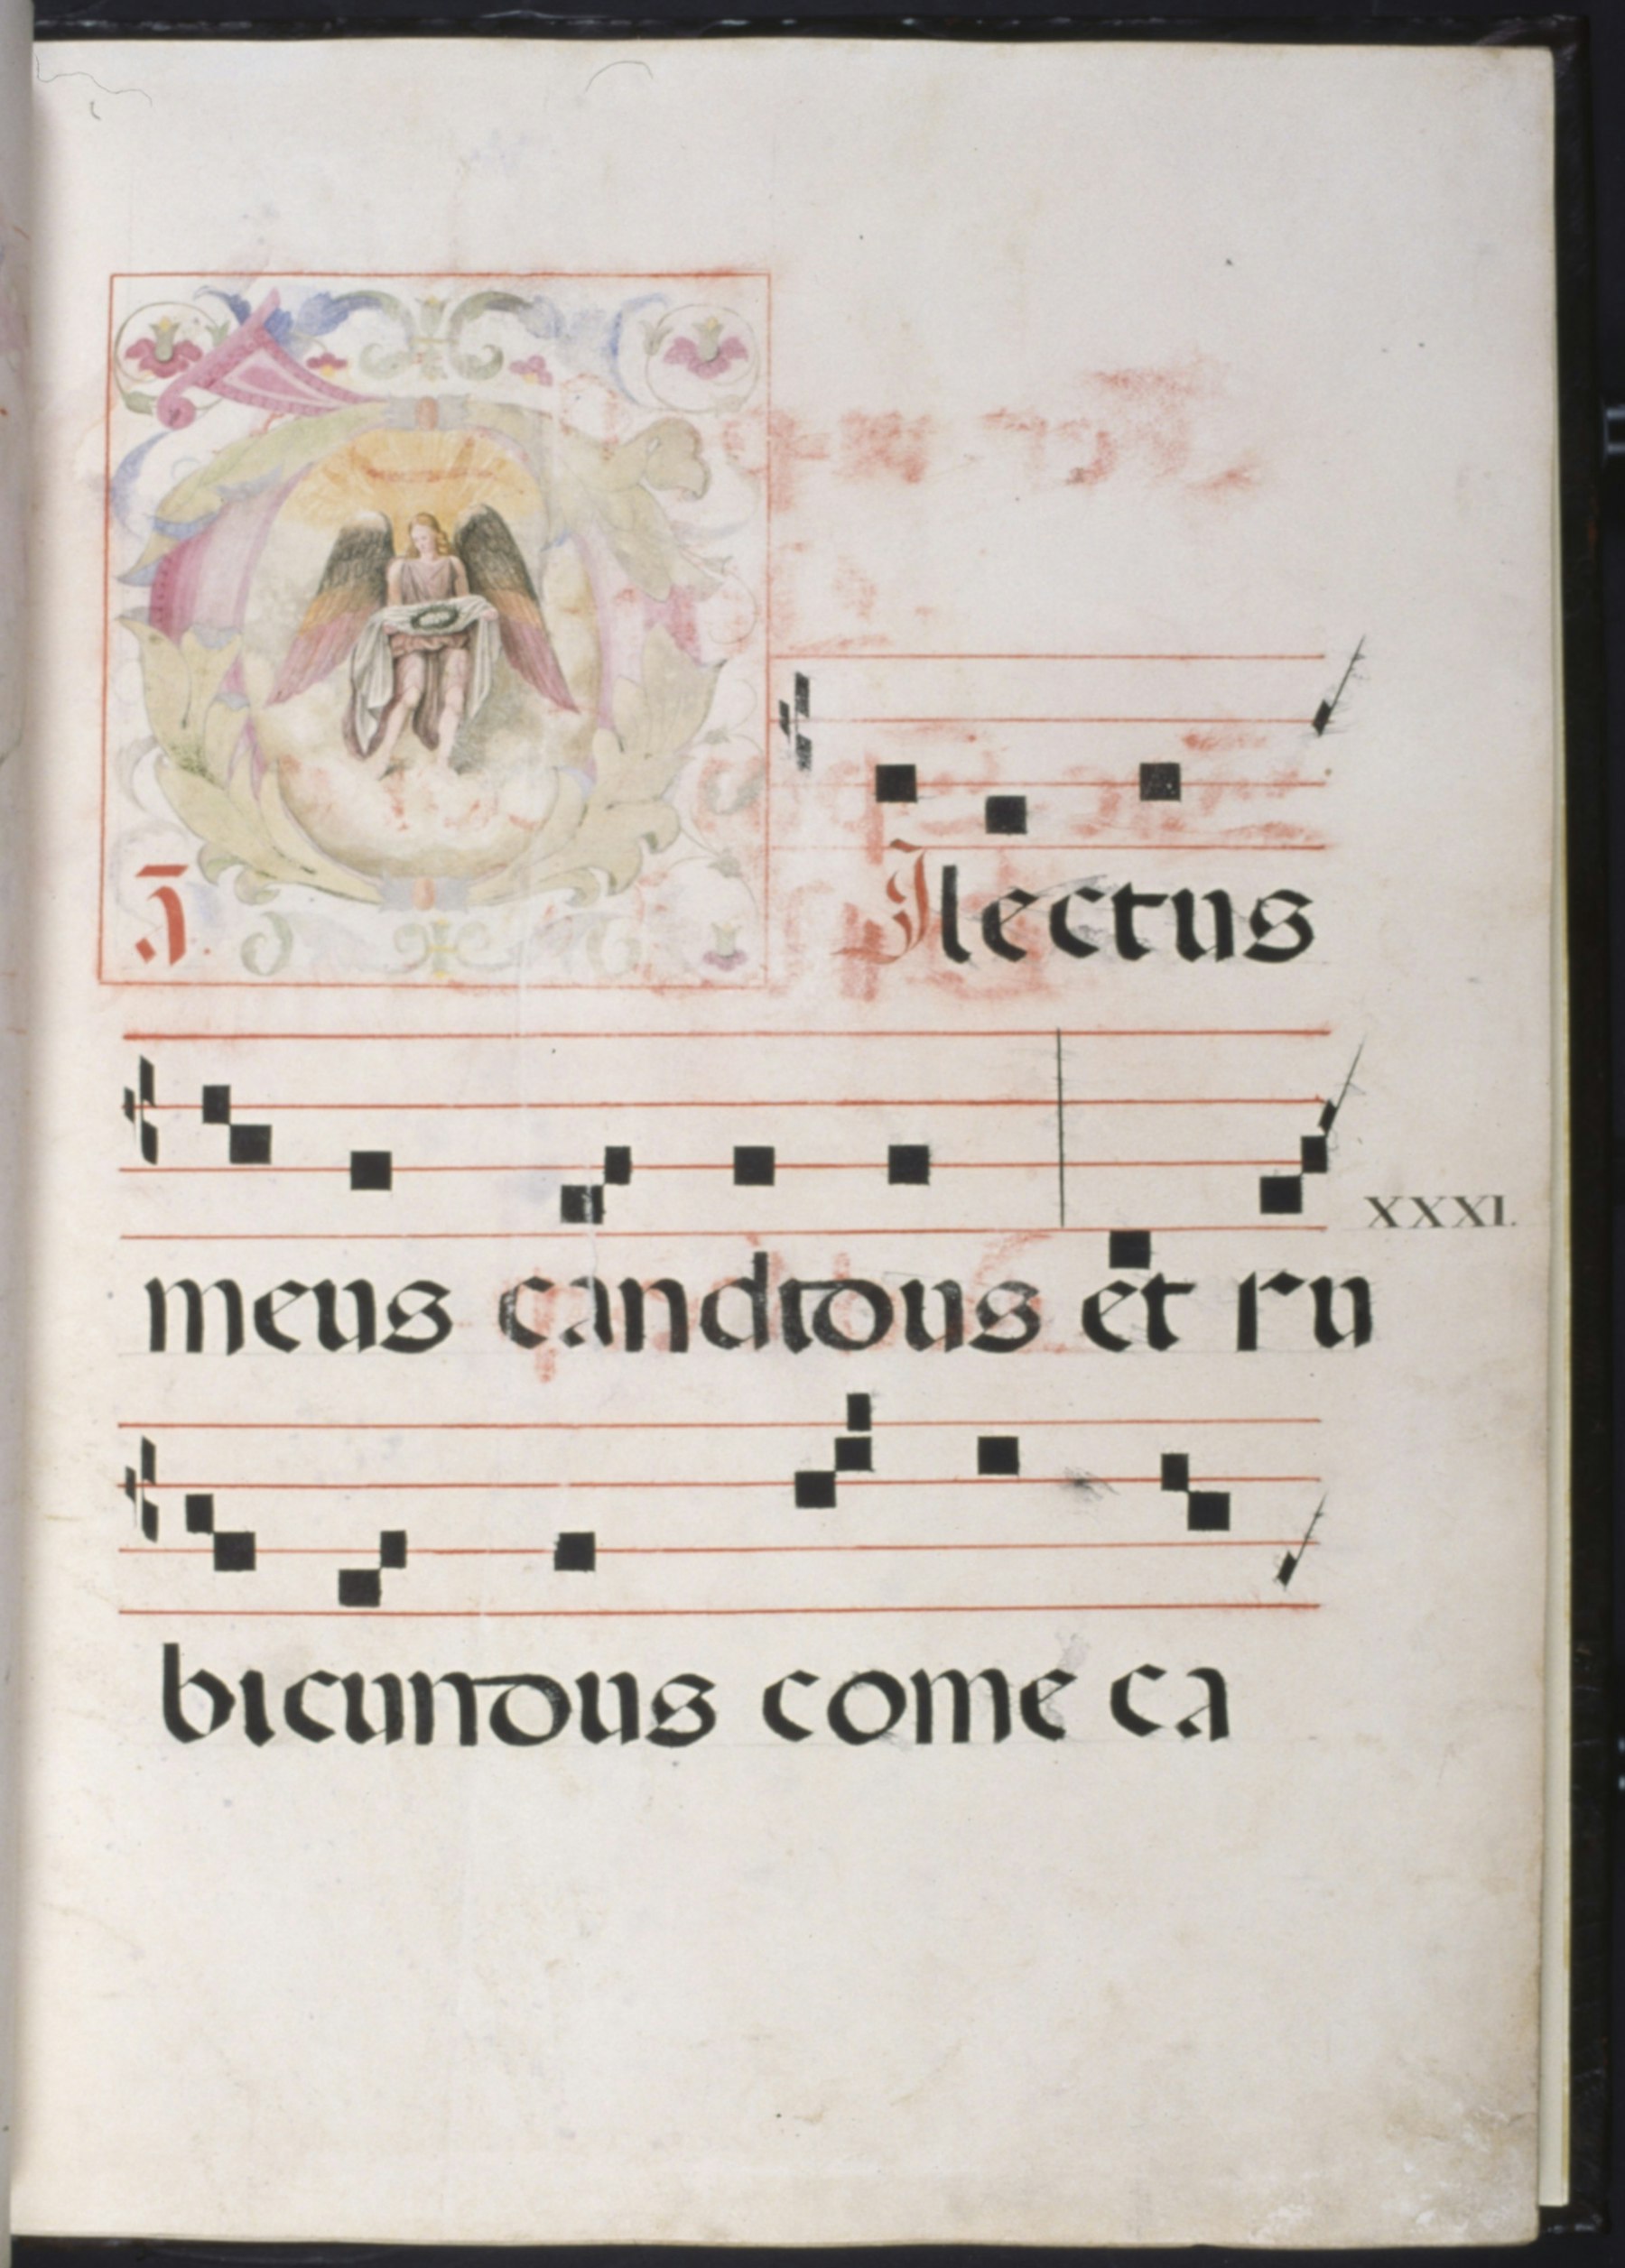 Dilectus
meus candidus et ru
XXXI.
bicundus come ca